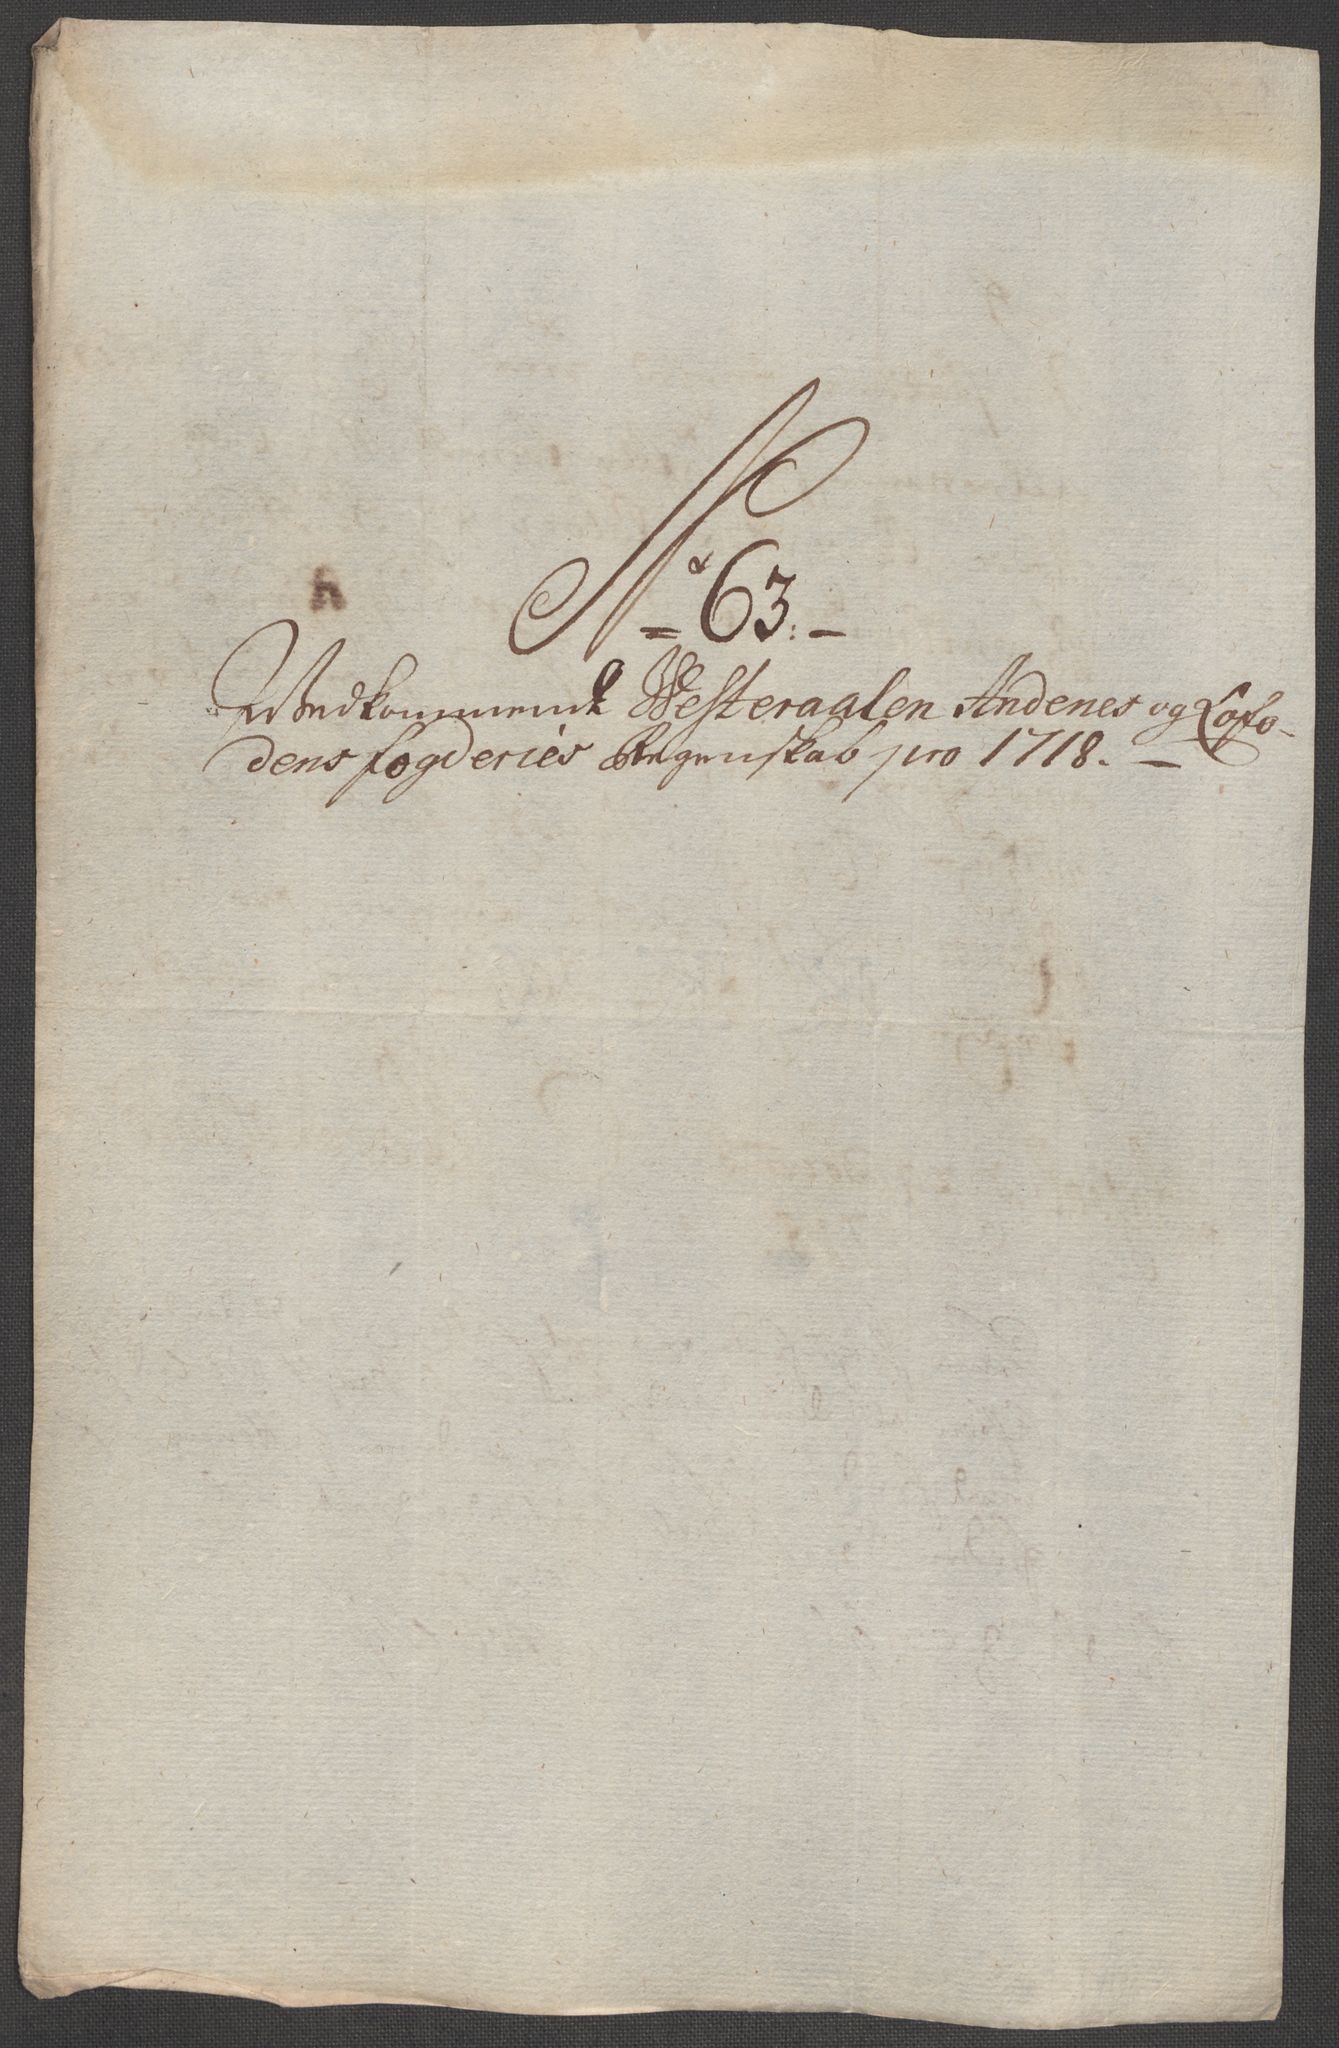 No 63.
Vedkommende Westeraalen Andenes og Lofo-
dens fogderies Regenskab pro 1718.